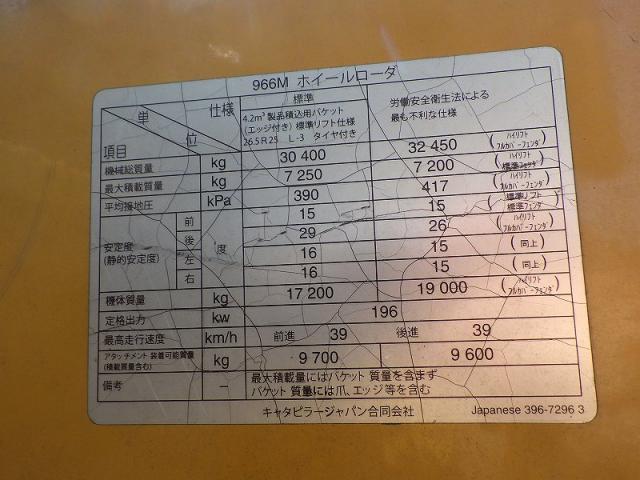 966M ホイールローダ
単位 仕様 項目
標準
4.2m³製品積込用バケット
(エッジ付き)標準リフト仕様
26.5R25 L-3 タイヤ付き
労働安全衛生法による
最も不利な仕様
機械総質量 kg 30 400 32 450 (ハイリフト フルカバーフェンダ)
最大積載質量 kg 7 250 7 200 (ハイリフト 標準フェンダ)
平均接地圧 kPa 390 417 (ハイリフト フルカバーフェンダ)
安定度 (静的安定度) 度
前 15 15 (標準リフト 標準フェンダ)
後 29 26 (ハイリフト フルカバーフェンダ)
左 16 15 (同上)
右 16 15 (同上)
機体質量 kg 17 200 19 000 (ハイリフト フルカバーフェンダ)
定格出力 kw 196
最高走行速度 km/h 前進 39 後進 39
アタッチメント装着可能質量
(積載質量含む) kg 9 700 9 600
備考 – 最大積載量にはバケット質量を含まず
バケット質量には爪、エッジ等を含む
キャタピラージャパン合同会社 Japanese 396-7296 3